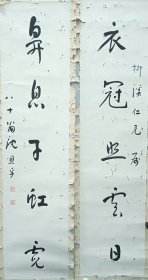 衣冠照雲日
柳溪仁兄
鼻息干虹霓
八十翁沈恩孚